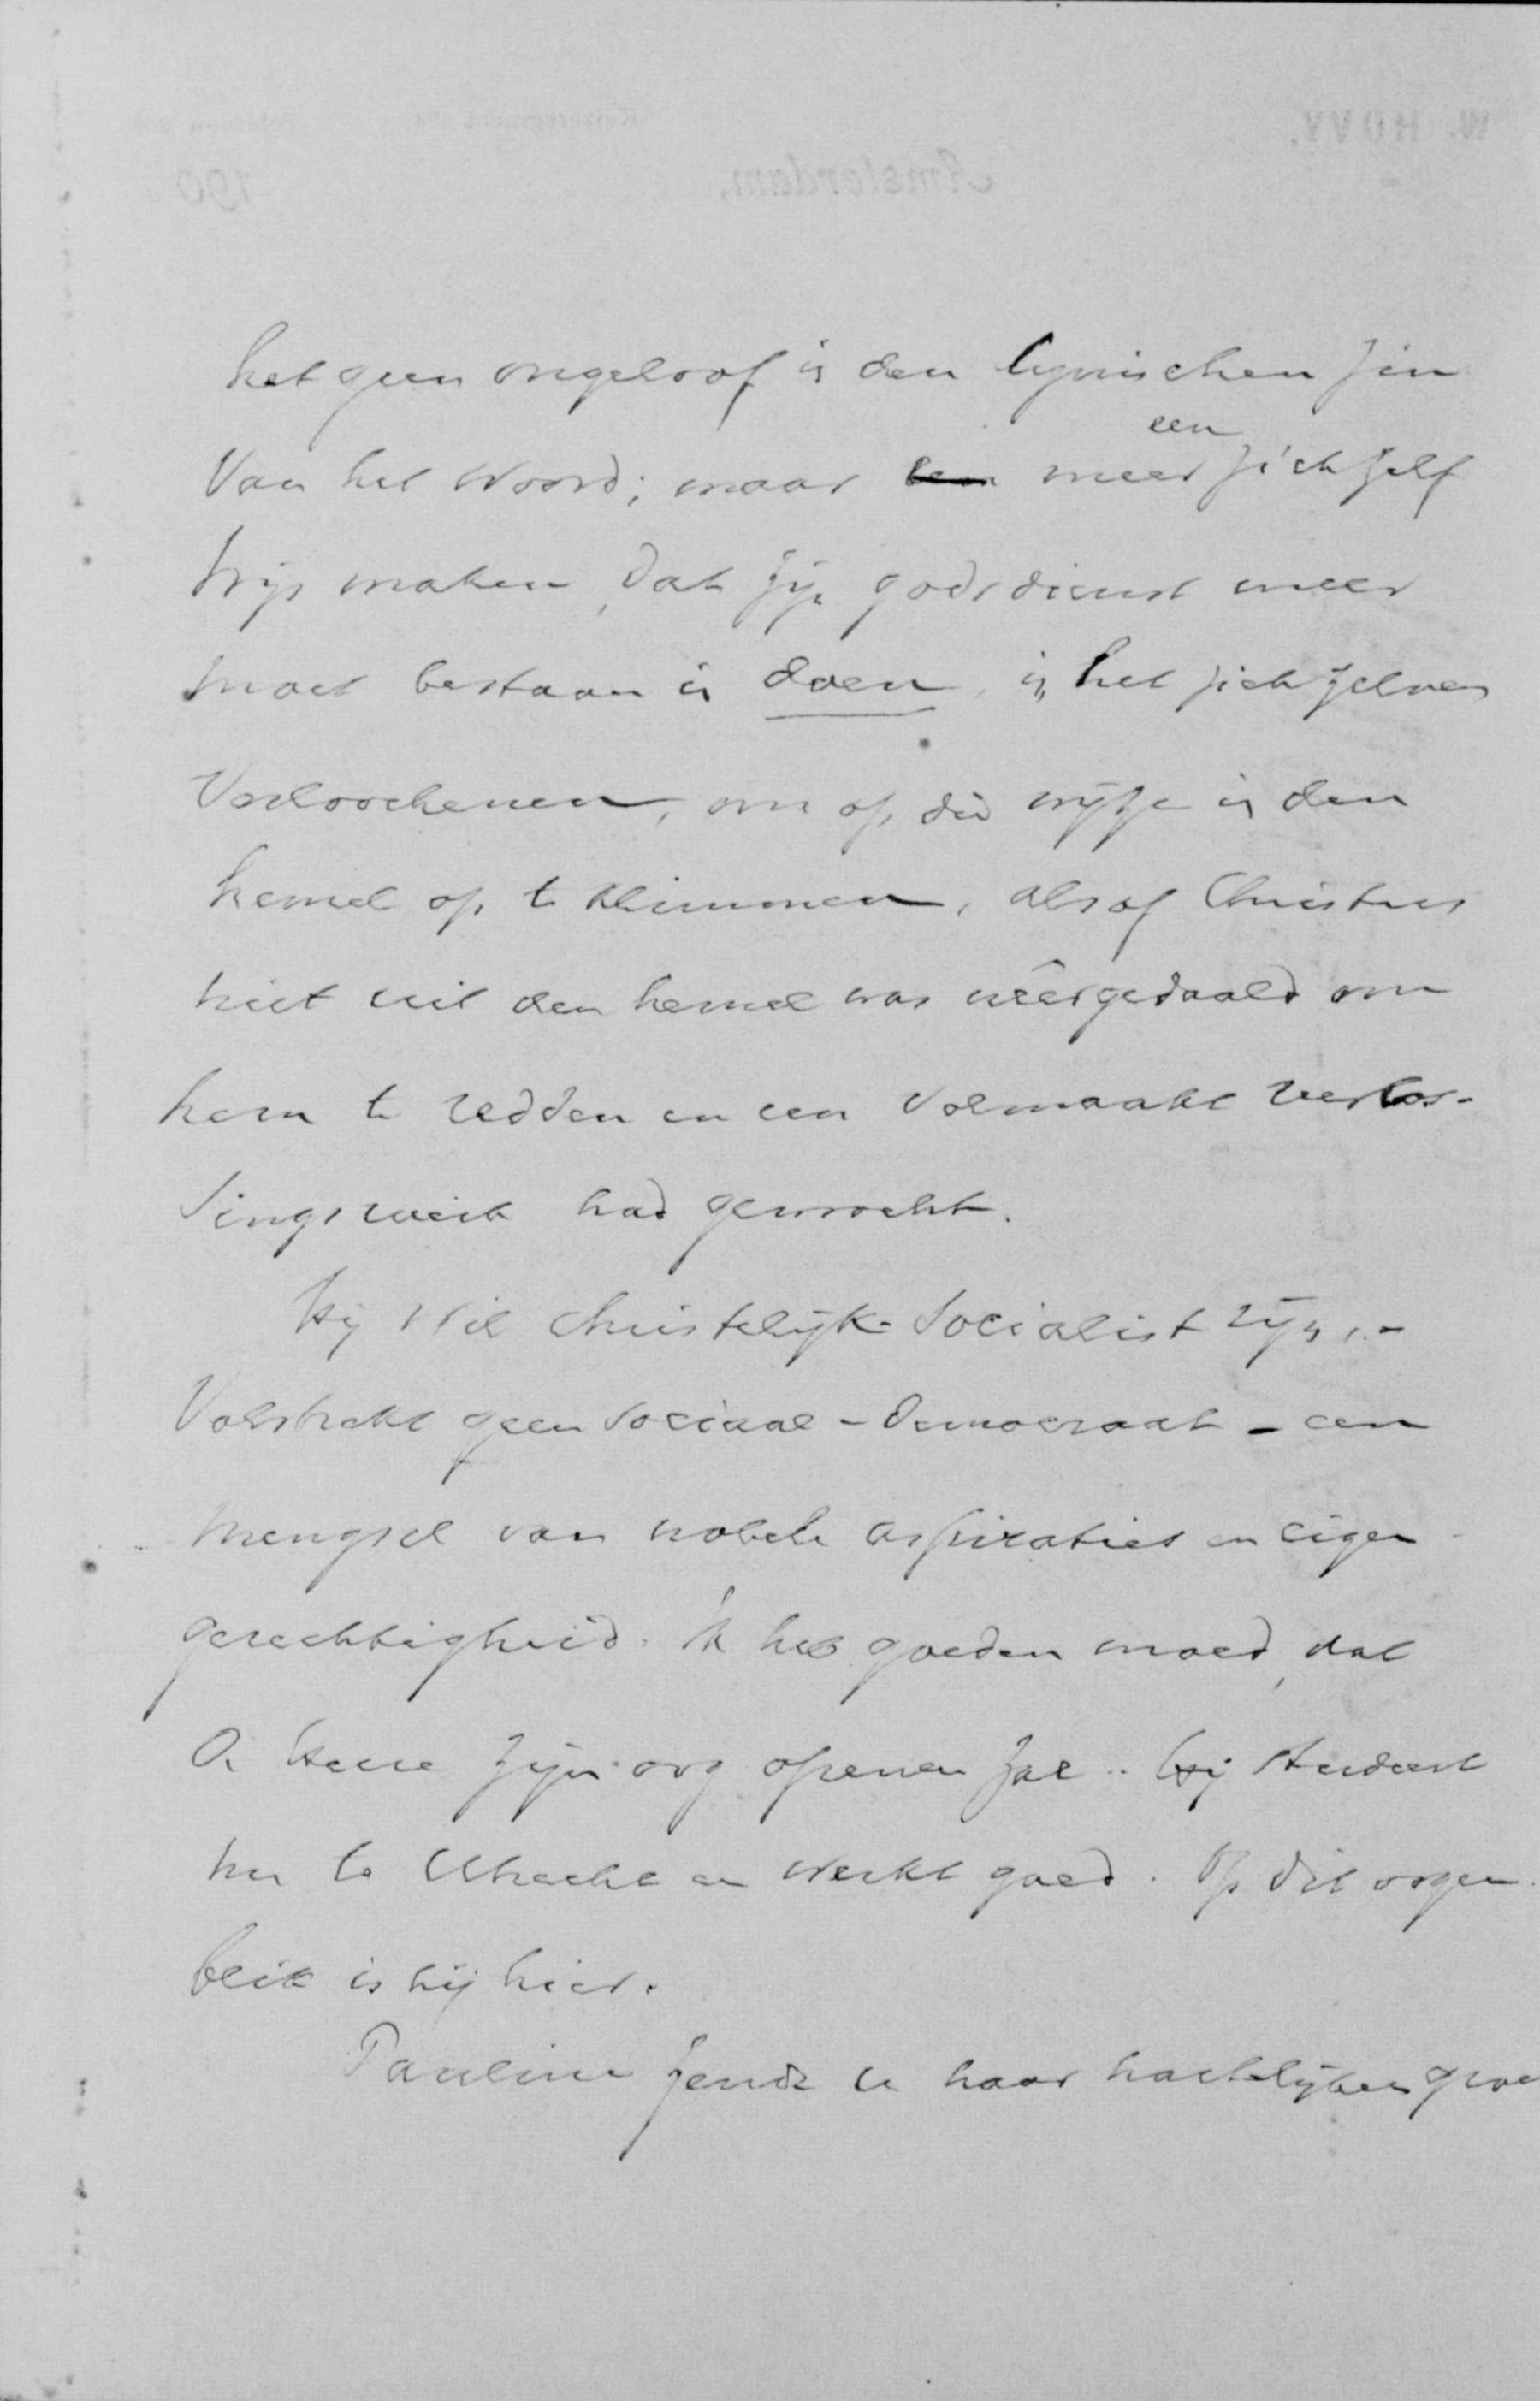 het geen ongeloof in den cynischen zin
van het woord; maar meer een zichzelf
wijs maken, dat zijn godsdienst meer
moet bestaan in doen, in het zich zelven
Verloochenen, om op die wijze in den
hemel op te klimmen, alsof Christus
niet uit den hemel was nêergedaald om
hem te redden en een volmaakt verlos-
singswerk had gewrocht.
Hij wil christelijk-Socialist zijn,-
Volstrekt geen sociaal-democraat - een
mengsel van nobele aspiraties en eigen
gerechtigheid. Ik heb goeden moed, dat
de Heere zijn oog openen zal. Hij studeert
nu te Utrecht en werkt goed. Op dit oogen-
blik is hij hier.
Pauline zendt u haar hartelijken groe